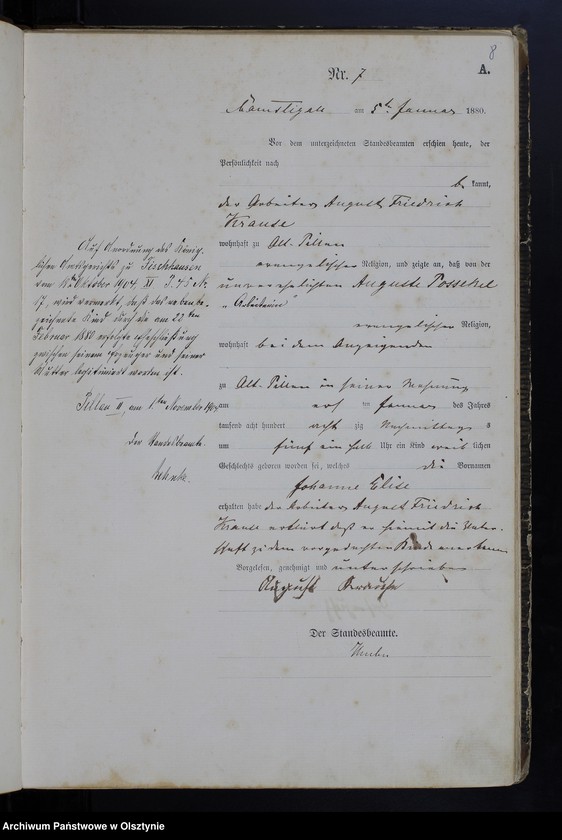 8
Nr. 7
A.
am 5ten Januar 1880.
Vor dem unterzeichneten Standesbeamten erschien heute, der
Persönlichkeit nach
be kannt,
der Arbeiter August Friedrich
Krause
wohnhaft zu Alt-Pillau
evangelischer Religion, und zeigte an, daß von der
unverehelichten Auguste Posseckel
„Arbeiterin"
evangelischer Religion,
wohnhaft bei dem Anzeigenden
zu Alt-Pillau in seiner Wohnung
am ersten Januar des Jahres
tausend acht hundert acht zig Nachmittags
um fünf ein halb Uhr ein Kind weib lichen
Geschlechts geboren worden sei, welches die Vornamen
Johanne Elise
erhalten habe der Arbeiter August Friedrich
Krause erklärt daß er hiermit die Vater-
schaft zu dem vorgedachten Kinde anerkenne
Vorgelesen, genehmigt und unterschrieben
August
Der Standesbeamte.
Auf Anordnung des König-
lichen Amtsgerichts zu Fischhausen
vom Oktober 1904
17, wird vermerkt, daß das nebenbe-
zeichnete Kind durch die am 22ten
Februar 1880 erfolgte Eheschließung
zwischen seinem Erzeuger und seiner
Mutter legitimiert worden ist.
Pillau II, am 1ten November
Der Standesbeamte.
Archiwum Państwowe w Olsztynie